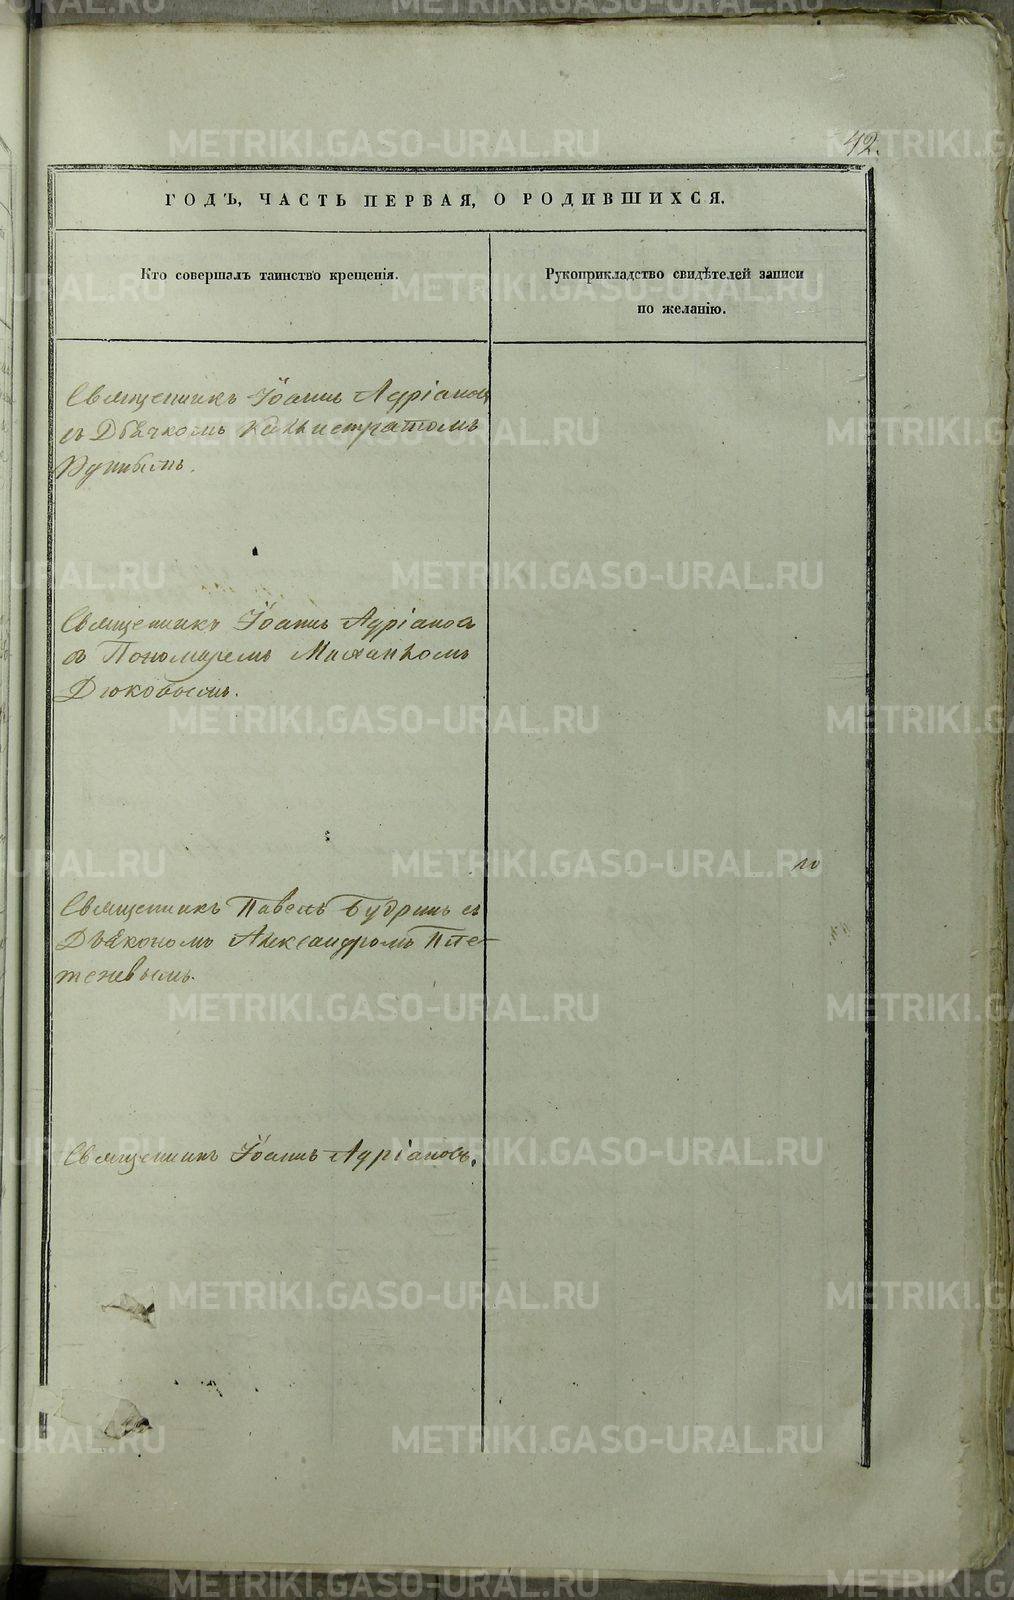 42.
ГОДЪ, ЧАСТЬ ПЕРВАЯ, О РОДИВШИХСЯ.
Кто совершалъ таинство крещенія.
Рукоприкладство свидѣтелей записи
по желанію.
Священникъ Іоаннъ Адріановъ
съ Дьячкомъ Каллистратомъ
Священникъ Іоаннъ Адріановъ
съ Пономаремъ Михаиломъ
Дюковымъ.
Священникъ Павелъ Будринъ съ
Дьякономъ Александромъ Пле-
теневымъ.
Священникъ Іоаннъ Адріановъ.
METRIKI.GASO-URAL.RU